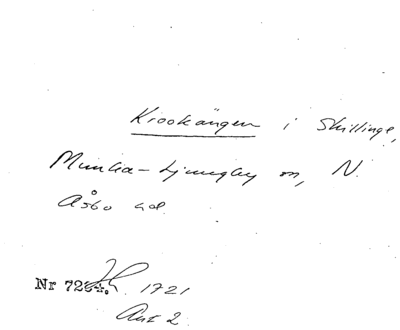 Krookängen i Skillinge,
Munka-Ljungby sn, N.
Åsbo hd.
Nr 1721
Akt 2